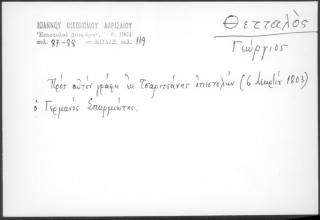 ΙΩΑΝΝΟΥ ΟΙΚΟΝΟΜΟΥ ΛΑΡΙΣΑΙΟΥ
"Επιστολαί Διαφόρων, 1964
σελ. 87-88 σελ. 119
Θετταλὸς
Γεώργιος
Πρὸς αὐτὸν γράφει ἐκ Τσαριτσάνης ἐπιστολὴν (6 Μαρτίου 1803)
ὁ Γερμανὸς Σπαρμιώτης.